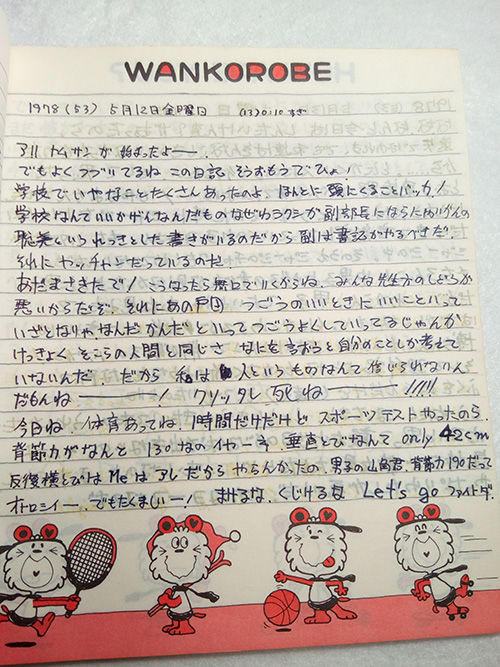 WANKOROBE
1978 (53) 5月12日金曜日 (13)0:10 すぎ
アリトムサンが始まったよ――.
でもよくつづいてるね この日記、そうおもうでひょ!
学校でいやなことたくさんあったのよ、ほんとに頭にくることバッカ!
学校なんていいかげんなんだものなぜワタクシが副部長にならにゃいかんの
れっきとした書きがいるのだから副は書記がやるべきだ
それにヤッチャンだっているのだ.
あたまさきたで! こうなったら無口でいくからね、みんな先生方のしどうが
悪いからだぞ、それにあの戸田 つごうのいいときにいいこといって
いざとなりゃ、なんだかんだといってつごうよくしていってるじゃんか
けっきょく そこらの人間と同じさ、なにを言おうと自分のことしか考えて
いないんだ だから私は人というものなんて信じられないん
だもんね――――! クソッタレ 死ね――――!!!!
今日ね、体育あってね、1時間だけだけど スポーツテストやったのら.
背筋力がなんと 130なのイヤーネ 垂直とびなんて only 42cm
反復横とびは Meは アレだから やらんかったの、男子の山崎君、背筋力190だって
オトロシイー、でもたくましいー! まけるな、くじけるな Let's go ファイトダ.